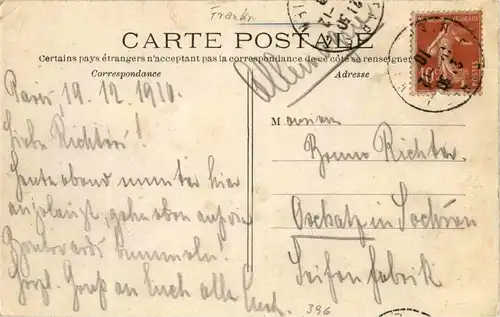 Frankr.
CARTE POSTALE
Certains pays étrangers n'acceptant pas la correspondance de ce côté se renseigner
Correspondance
Adresse
Allemagne
Paris, 19.12.1910.
Liebe Richters!
Heute abend munter hier
angelangt, gehe eben auf die
Boulevards bummeln!
Herzl. Gruß an Euch alle
M onsieur
Bruno Richter
Oschatz in Sachsen
Seifenfabrik
396